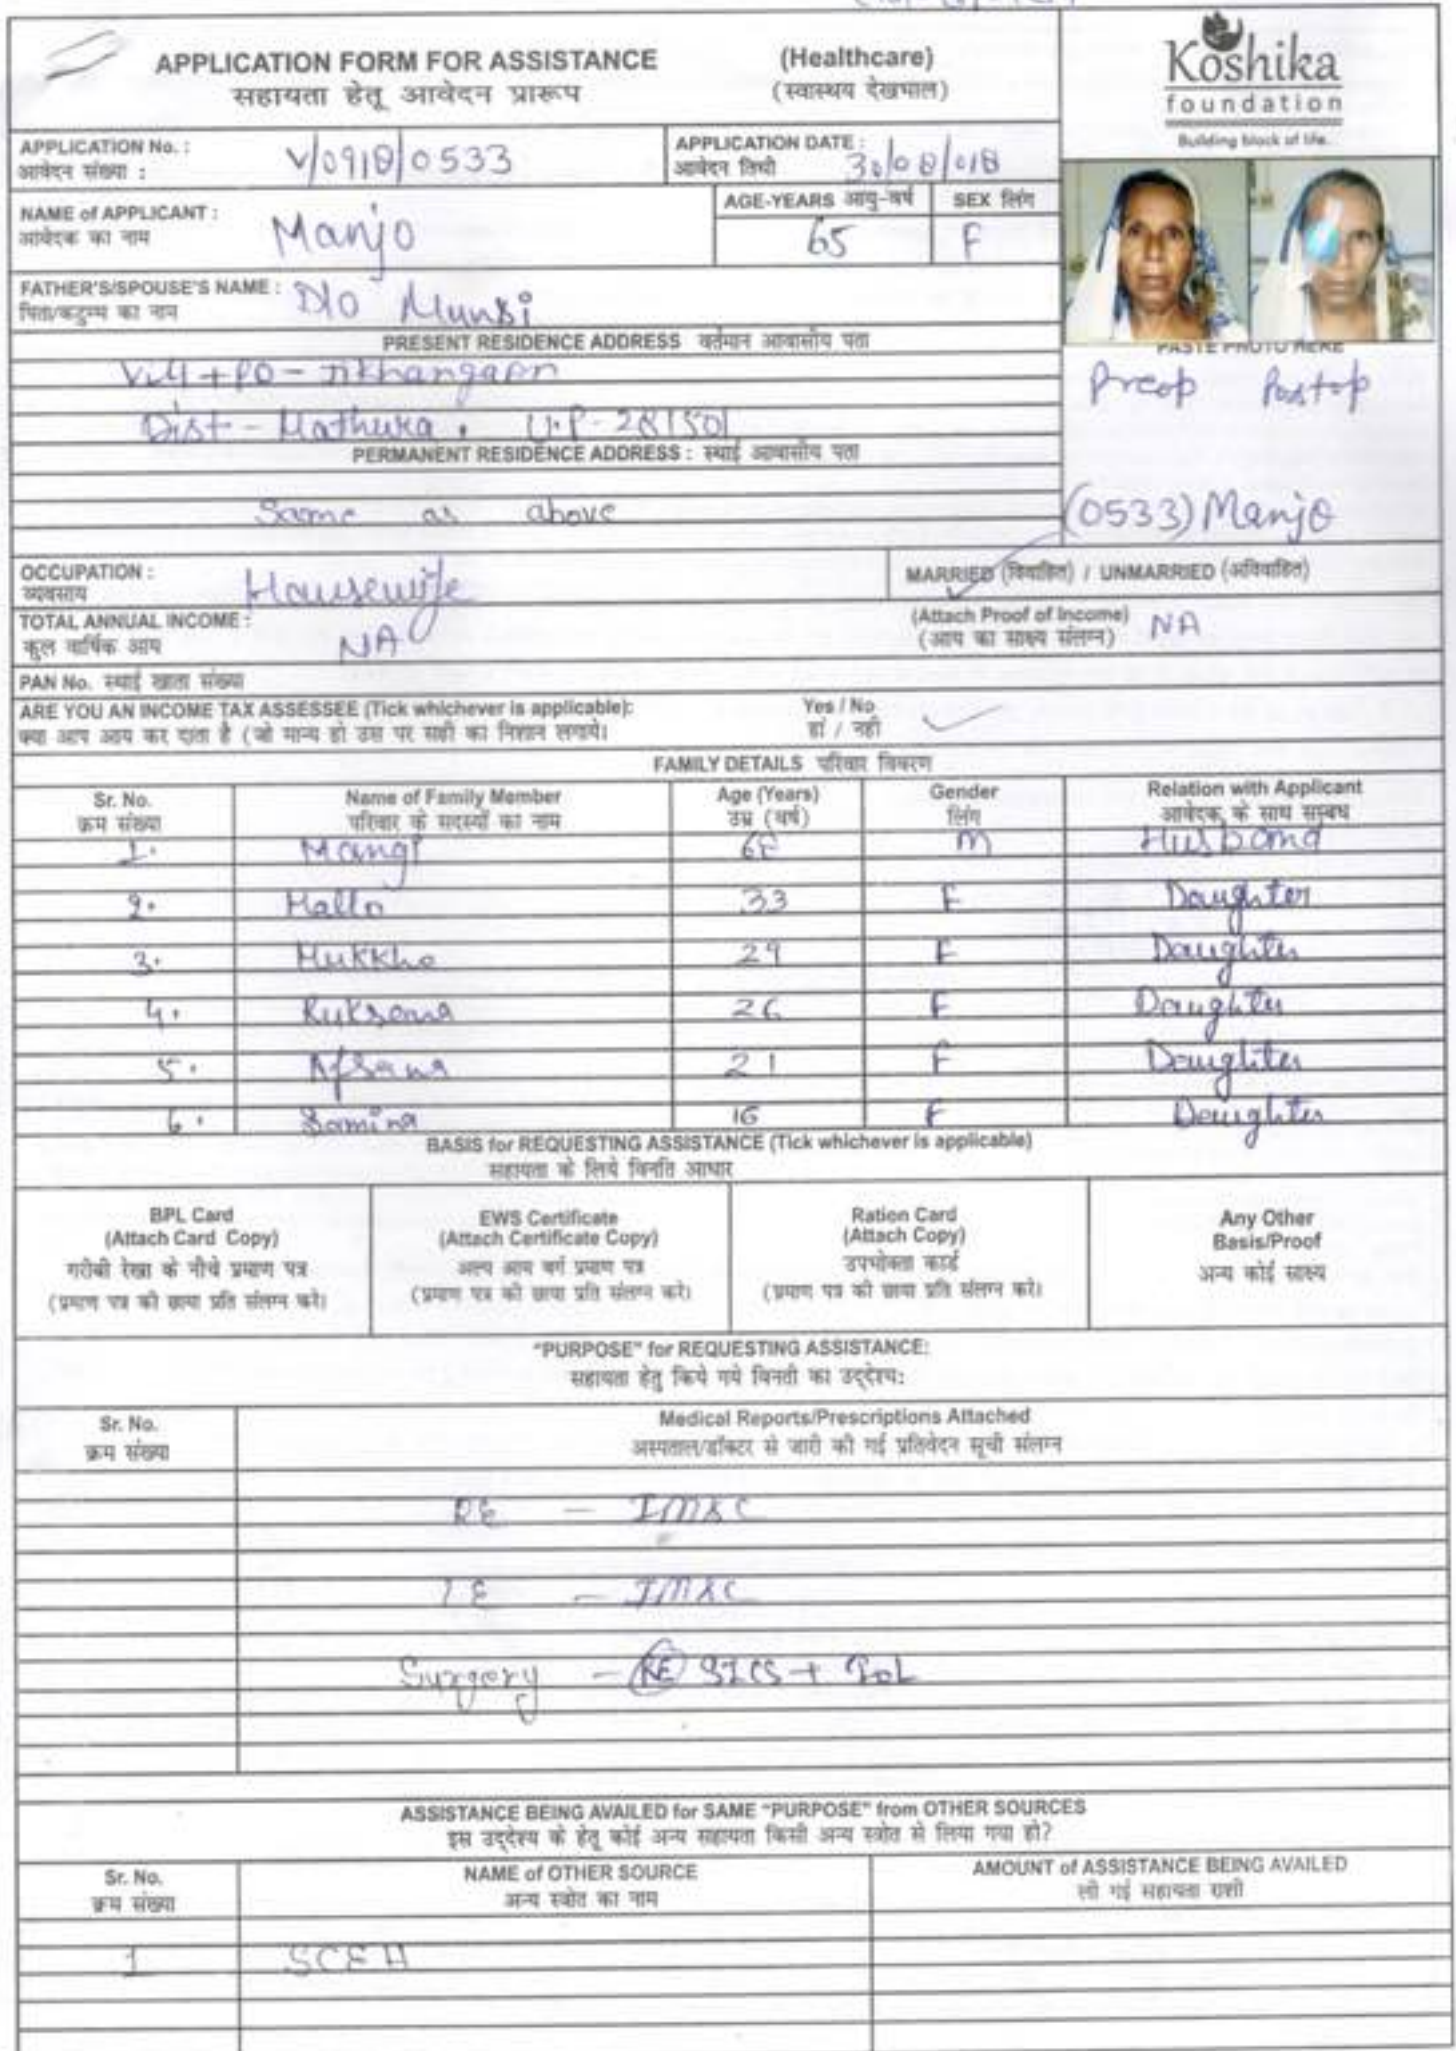 APPLICATION FORM FOR ASSISTANCE
सहायता हेतू आवेदन प्रारूप
(Healthcare)
(स्वास्थय देखभाल)
Koshika
foundation
Building block of life...
APPLICATION No. :
आवेदन संख्या :
V/0918/0533
APPLICATION DATE :
आवेदन तिथी
30/08/018
NAME of APPLICANT :
आवेदक का नाम
Manjo
AGE-YEARS आयु-वर्ष
65
SEX लिंग
F
FATHER'S/SPOUSE'S NAME :
पिता/कटुम्म का नाम
D/O Munsi
PRESENT RESIDENCE ADDRESS वर्तमान आवासीय पता
Vill + PO -
Dist - Mathura. U.P - 281501
PASTE PHOTO HERE
Preop Postop
PERMANENT RESIDENCE ADDRESS : स्थाई आवासीय पता
Same as above
(0533) Manjo
OCCUPATION :
व्यवसाय
Housewife
MARRIED (विवाहित) / UNMARRIED (अविवाहित)
TOTAL ANNUAL INCOME :
कुल वार्षिक आय
NA
(Attach Proof of Income)
(आय का साक्ष्य संलग्न)
NA
PAN No. स्थाई खाता संख्या
ARE YOU AN INCOME TAX ASSESSEE (Tick whichever is applicable):
क्या आप आय कर दाता है (जो मान्य हो उस पर सही का निशान लगाये।
Yes / No
हां / नही
FAMILY DETAILS परिवार विवरण
Sr. No. Name of Family Member Age (Years) Gender Relation with Applicant
क्रम संख्या परिवार के सदस्यों का नाम उम्र (वर्ष) लिंग आवेदक के साथ सम्बध
1. Mangi M Husband
2. Mallo 33 F Daughter
3. Mukkho 29 F Daughter
4. Ruksana 26 F Daughter
5. Afsana 21 F Daughter
6. Samina 16 F Daughter
BASIS for REQUESTING ASSISTANCE (Tick whichever is applicable)
सहायता के लिये विनति आधार
BPL Card
(Attach Card Copy)
गरीबी रेखा के नीचे प्रमाण पत्र
(प्रमाण पत्र की छाया प्रति संलग्न करे।
EWS Certificate
(Attach Certificate Copy)
अल्प आय वर्ग प्रमाण पत्र
(प्रमाण पत्र की छाया प्रति संलग्न करे।
Ration Card
(Attach Copy)
उपभोक्ता कार्ड
(प्रमाण पत्र की छाया प्रति संलग्न करे।
Any Other
Basis/Proof
अन्य कोई साक्ष्य
"PURPOSE" for REQUESTING ASSISTANCE:
सहायता हेतु किये गये विनती का उद्देश्य:
Sr. No.
क्रम संख्या
Medical Reports/Prescriptions Attached
अस्पताल/डॉक्टर से जारी की गई प्रतिवेदन सूची संलग्न
RE - IMSC
LE - IMSC
Surgery - RE SICS + IOL
ASSISTANCE BEING AVAILED for SAME "PURPOSE" from OTHER SOURCES
इस उद्देश्य के हेतू कोई अन्य सहायता किसी अन्य स्त्रोत से लिया गया हो?
Sr. No. NAME of OTHER SOURCE AMOUNT of ASSISTANCE BEING AVAILED
क्रम संख्या अन्य स्त्रोत का नाम ली गई सहायता राशी
1 SCEH